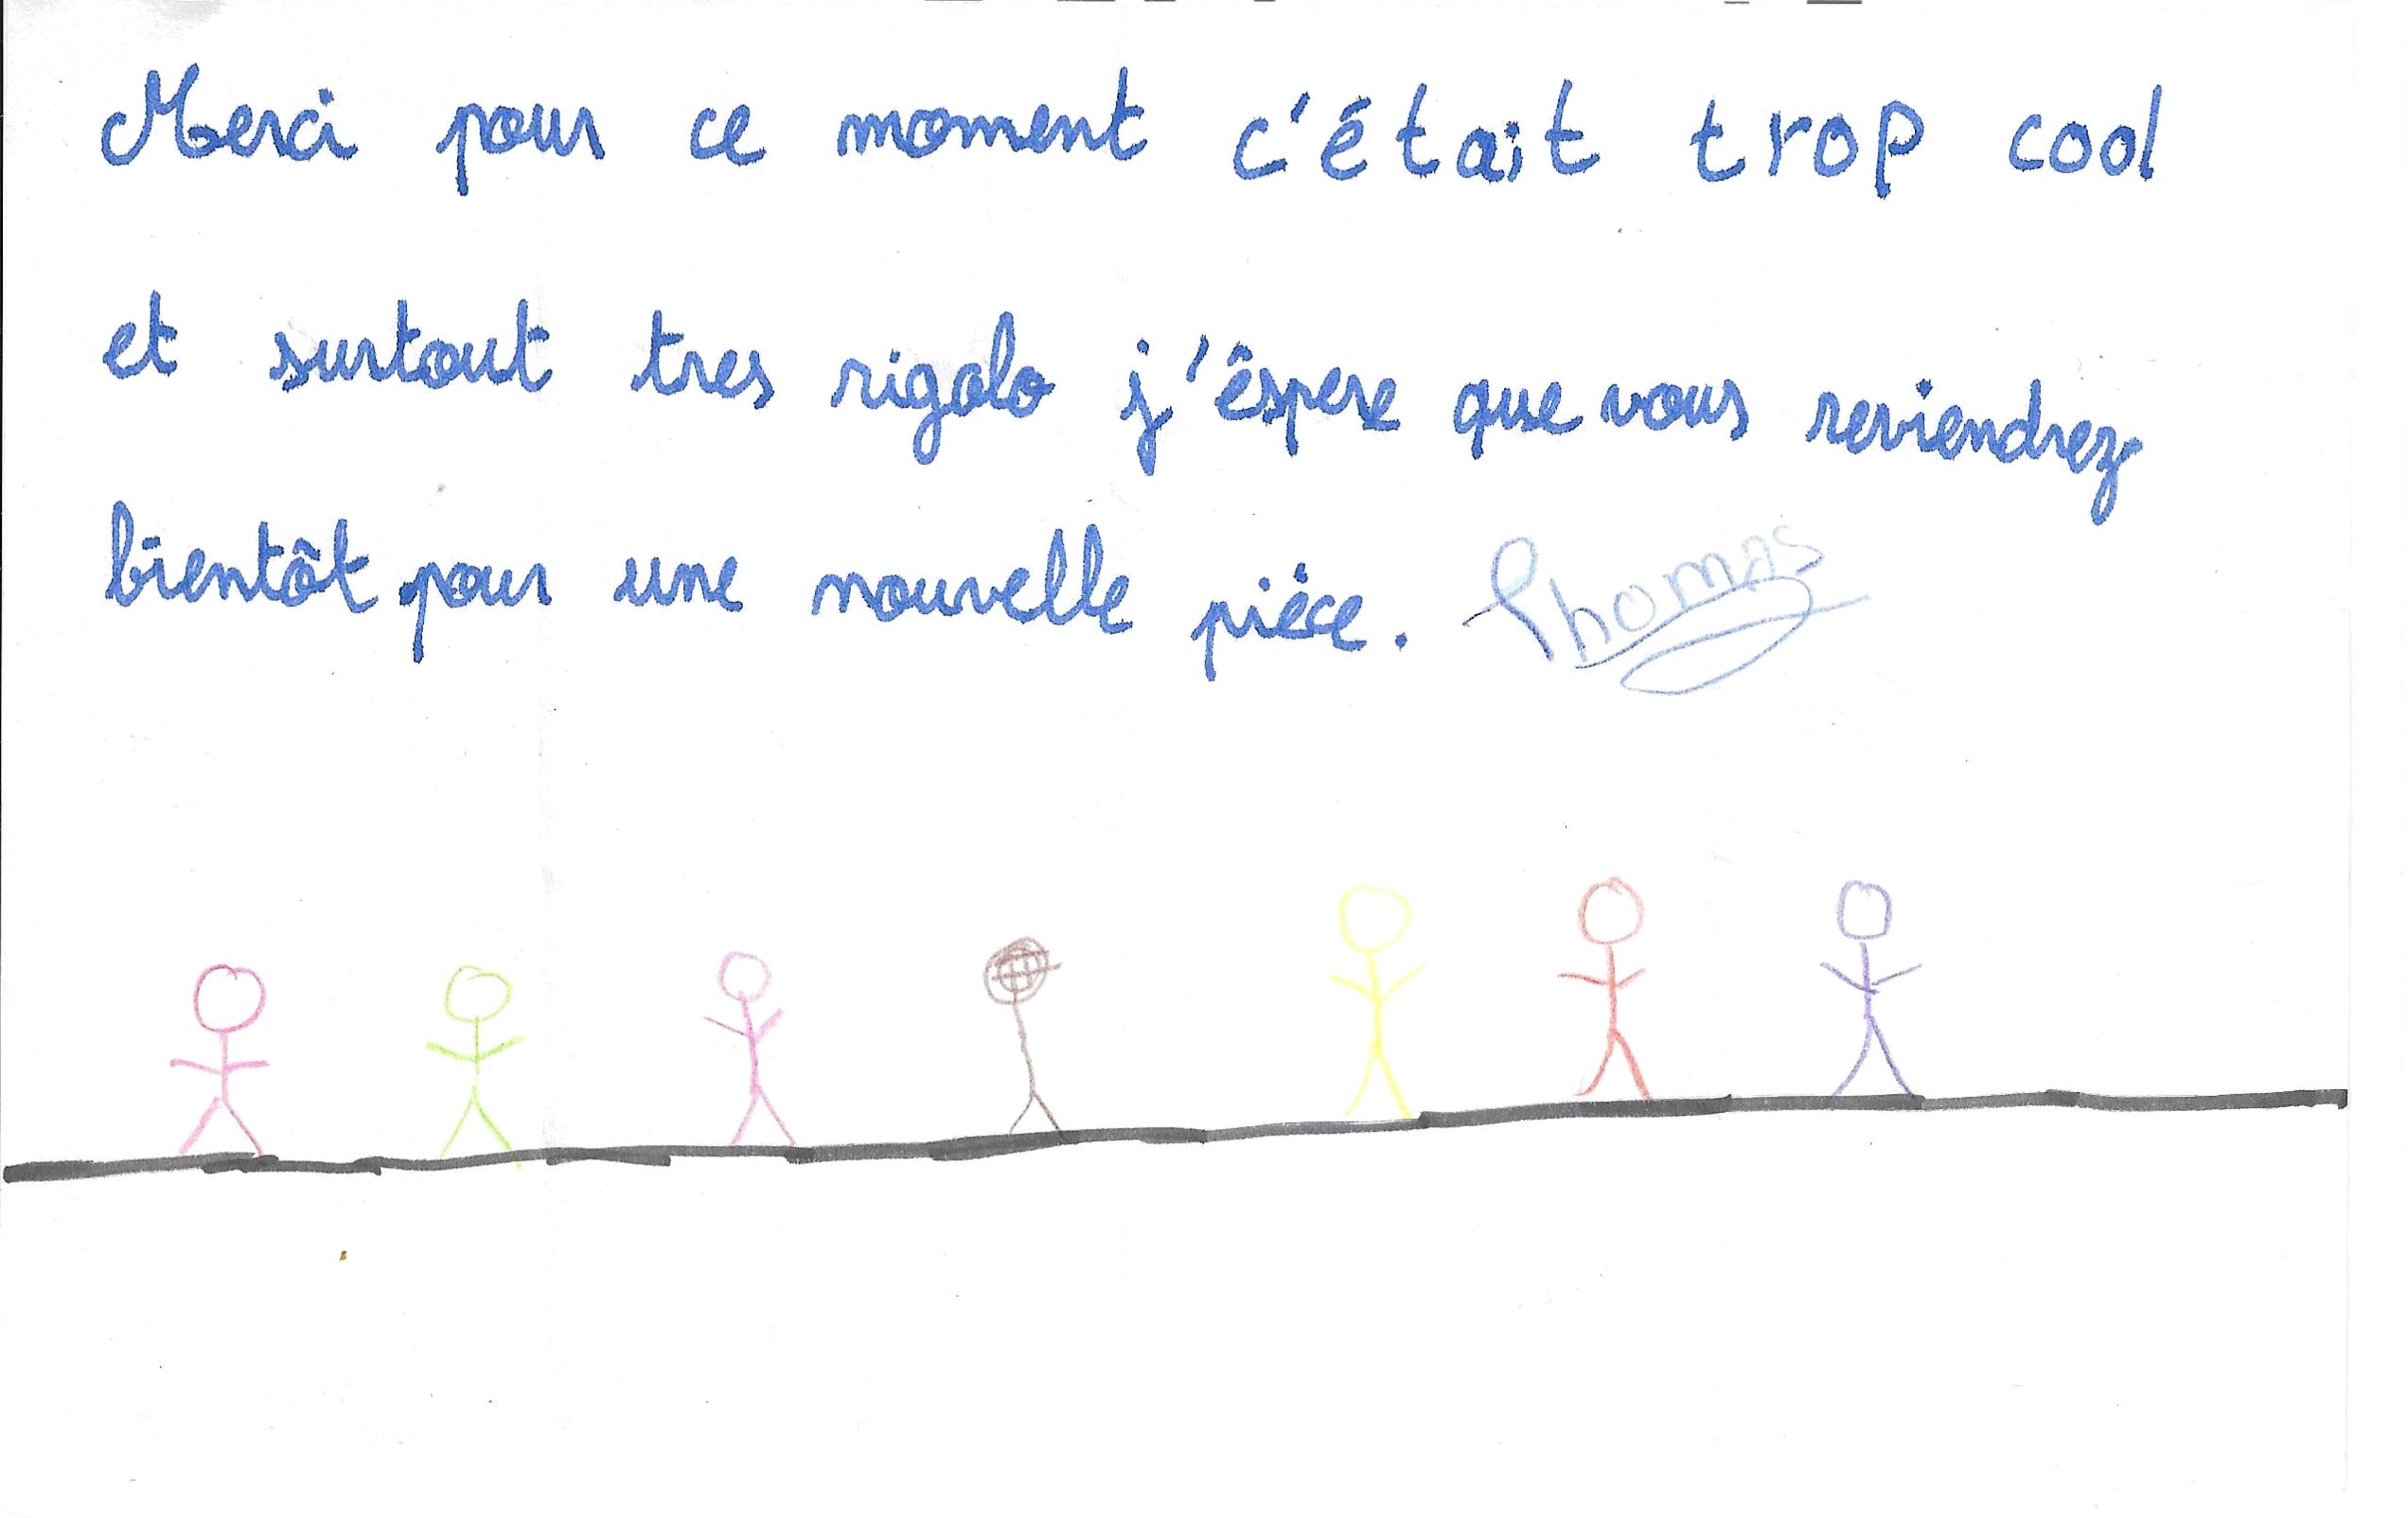 Merci pour ce moment c'était trop cool
et surtout tres rigolo j'êspere que vous reviendrez
bientôt pour une nouvelle pièce. Thomas